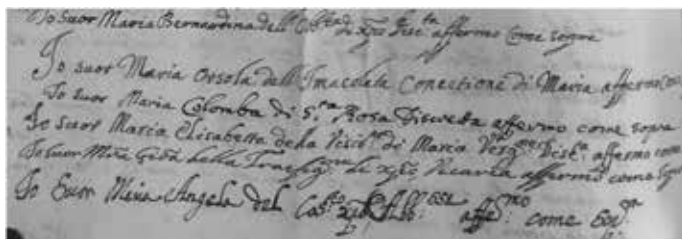 Io Suor Maria Bernardina dell affermo Come sopra
Io suor Maria Orsola dell Imacolata Conectione di Maria affermo
Io suor Maria Colomba di S.ta Rosa Discreta affermo come sopra
Io suor Maria Elisabetta della Visit.e di Maria Verg.e Disc.ta affermo come
Io Suor M.ria della Trasfig.one di xpo Vicaria affermo come sopra
Io Suor M.ria Angela del aff.mo come